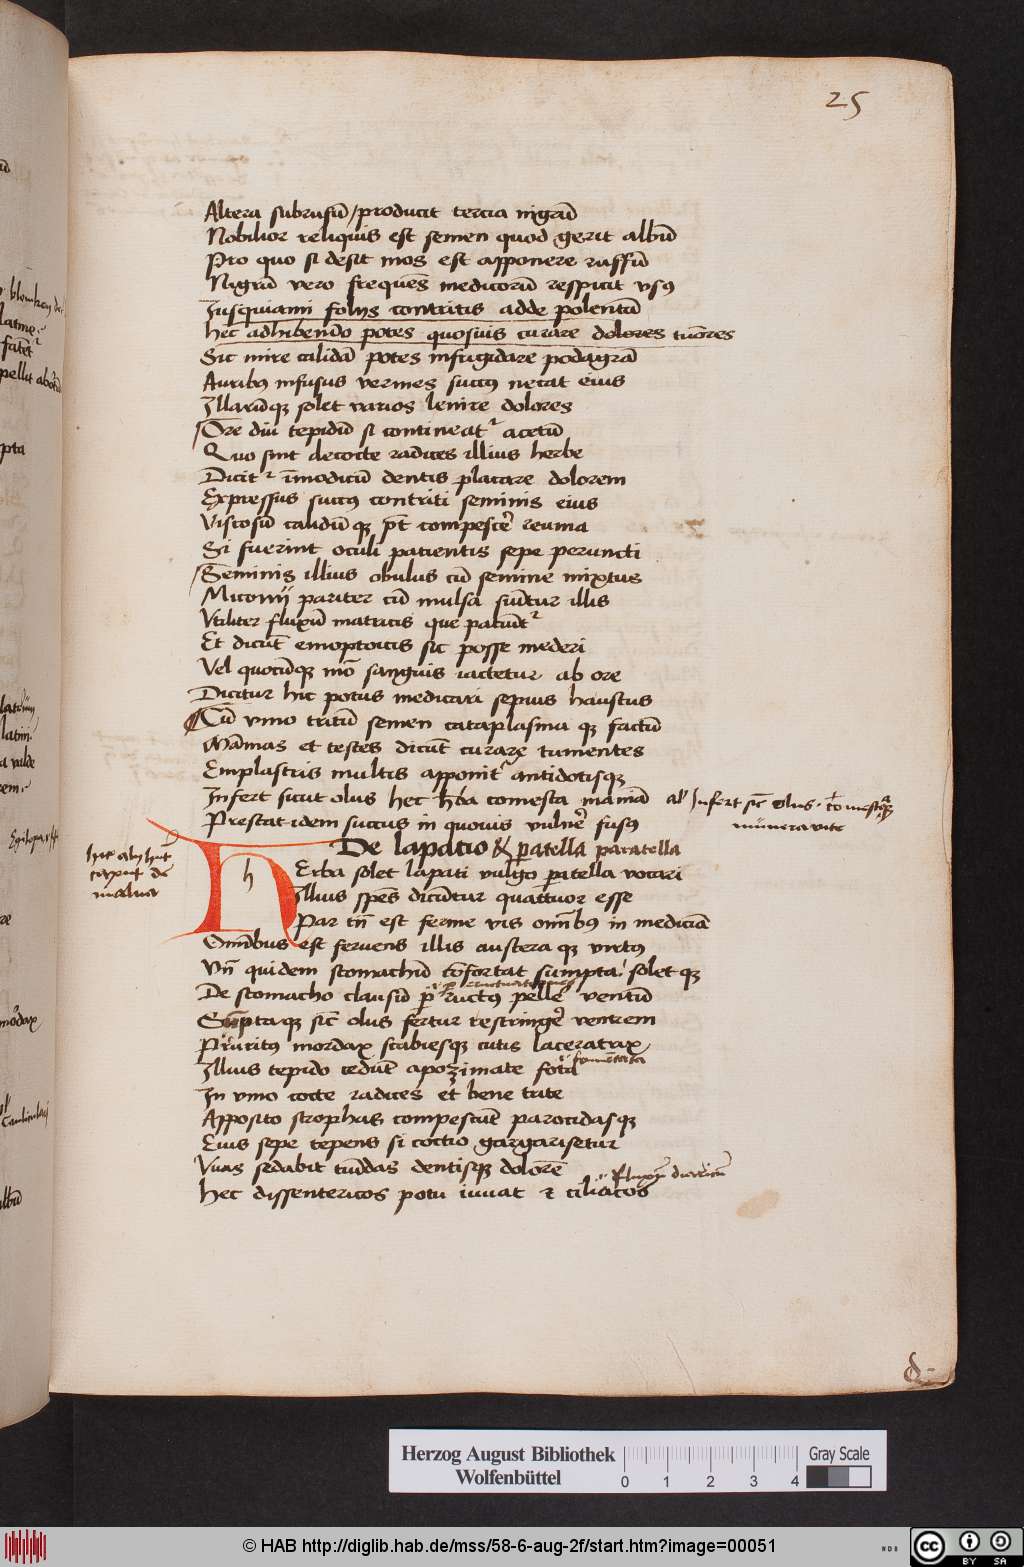 25
Altera subrufū/producit tercia nigrū
Nobilior reliquis est semen quod gerit albū
Pro quo si desit mos est apponere ruffū
Nigrū vero frequēs medicorū respicit vsꝰ
Iusquiami folijs contritis adde polentā
Hec adhibendo potes quosuis curare dolores tumores
Sic mire calidā potes infrigidare podagrā
Auribꝰ infusus vermes succꝰ necat eius
Illarūqꝫ solet varios lenire dolores
Ore diu tepidū si contineatᷣ acetū
Quo sint decocte radices illius herbe
Dicitᷣ īmodicū dentis placare dolorem
Expressus succꝰ contriti seminis eius
Viscosū calidū qꝫ pt̄ compescē reuma
Si fuerint oculi patientis sepe peruncti
Seminis illius obulus cū semine mixtus
Miconij pariter cū mulsa sūtur illis
Vtiliter fluxū matricis que patiūtᷣ
Et dicūt emoptoicis sic posse mederi
Vel quocūqꝫ mō sanguis iactetur ab ore
Dicitur hic potus medicari sepius haustus
Cū vino tritū semen cataplasma qꝫ factū
Māmas et testes dicūt curare tumentes
Emplastris multis apponitᷣ antidotisqꝫ
Infert sicut olus hec hr̄ba comesta maniā
al' Infert sic̄ olus. comestaqꝫ
munera vite
Prestat idem succus in quouis vulnē fusꝰ
De lapacio & patella paratella
hic alij hn̄t
caput de
malua
h
Herba solet lapati vulgo patella vocari
Illius spēs dicūtur quattuor esse
Par tn̄ est ferme vis omībꝰ in medicīa
Omībus est feruens illis austera qꝫ virtꝰ
Vn̄ quidem stomachū cōfortat sumpta solet qꝫ
De stomacho clausū p̄ ructꝰ pellē ventū
Sūptaqꝫ sic̄ olus fertur restringē ventrem
Pruritꝰ mordax scabiesqꝫ cutis laceratrax
Illius tepido cedūt apozimate fota
fomentata
In vino cocte radices et bene trite
Apposito strophas compescūt parotidasqꝫ
Eius sepe tepens si coctio gargarisetur
Vuas sedabit tūidas dentisqꝫ dolorē
Hec dissentericos potu iuuat & ciliacos
Herzog August Bibliothek
Wolfenbüttel
0 1 2 3 4
Gray Scale
© HAB http://diglib.hab.de/mss/58-6-aug-2f/start.htm?image=00051
CC BY SA